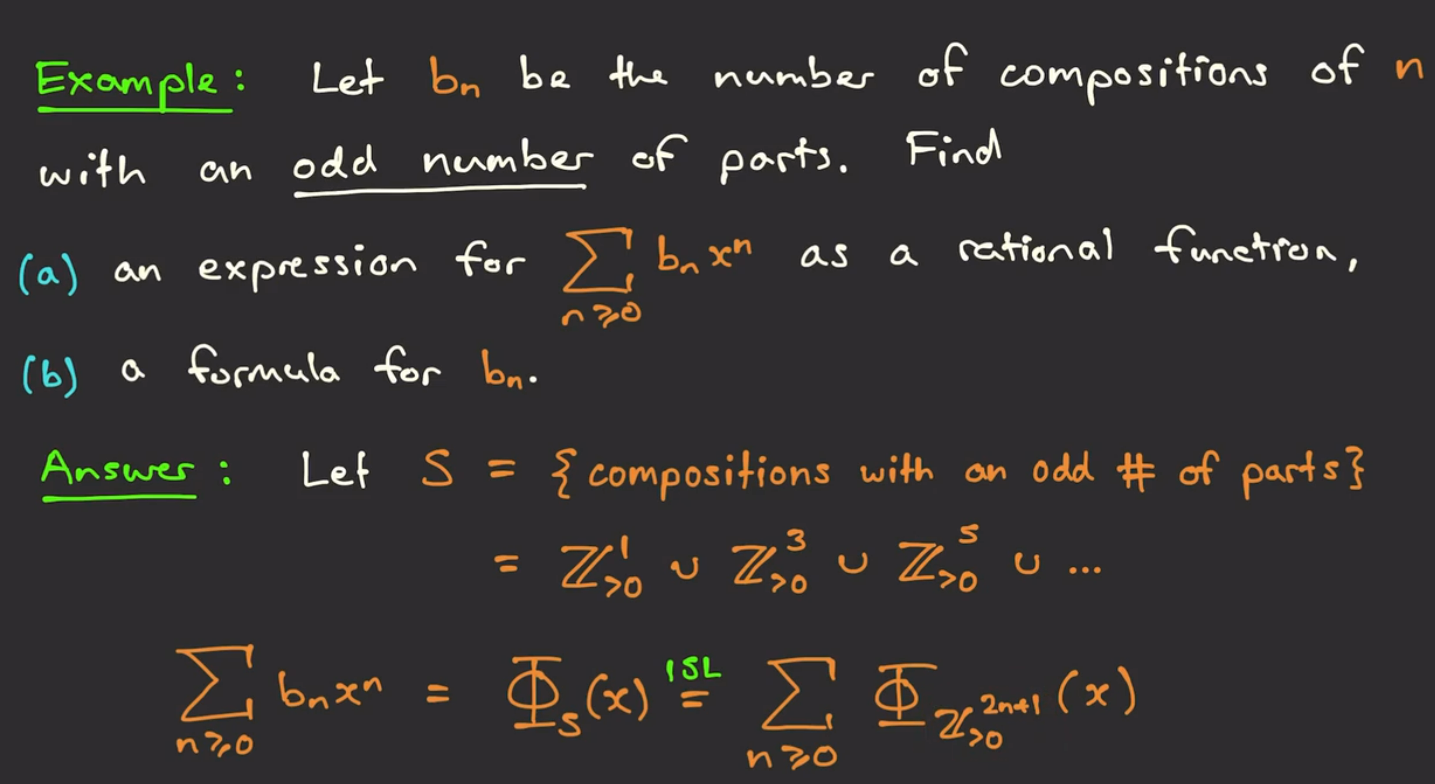 Example: Let bₙ be the number of compositions of n
with an odd number of parts. Find
(a) an expression for ∑_{n≥0} bₙ xⁿ as a rational function,
(b) a formula for bₙ.
Answer: Let S = {compositions with an odd # of parts}
= ℤ¹_{>0} ∪ ℤ³_{>0} ∪ ℤ⁵_{>0} ∪ ...
∑_{n≥0} bₙxⁿ = Φ_S(x) =^{ISL} ∑_{n≥0} Φ_{ℤ_{>0}^{2n+1}}(x)